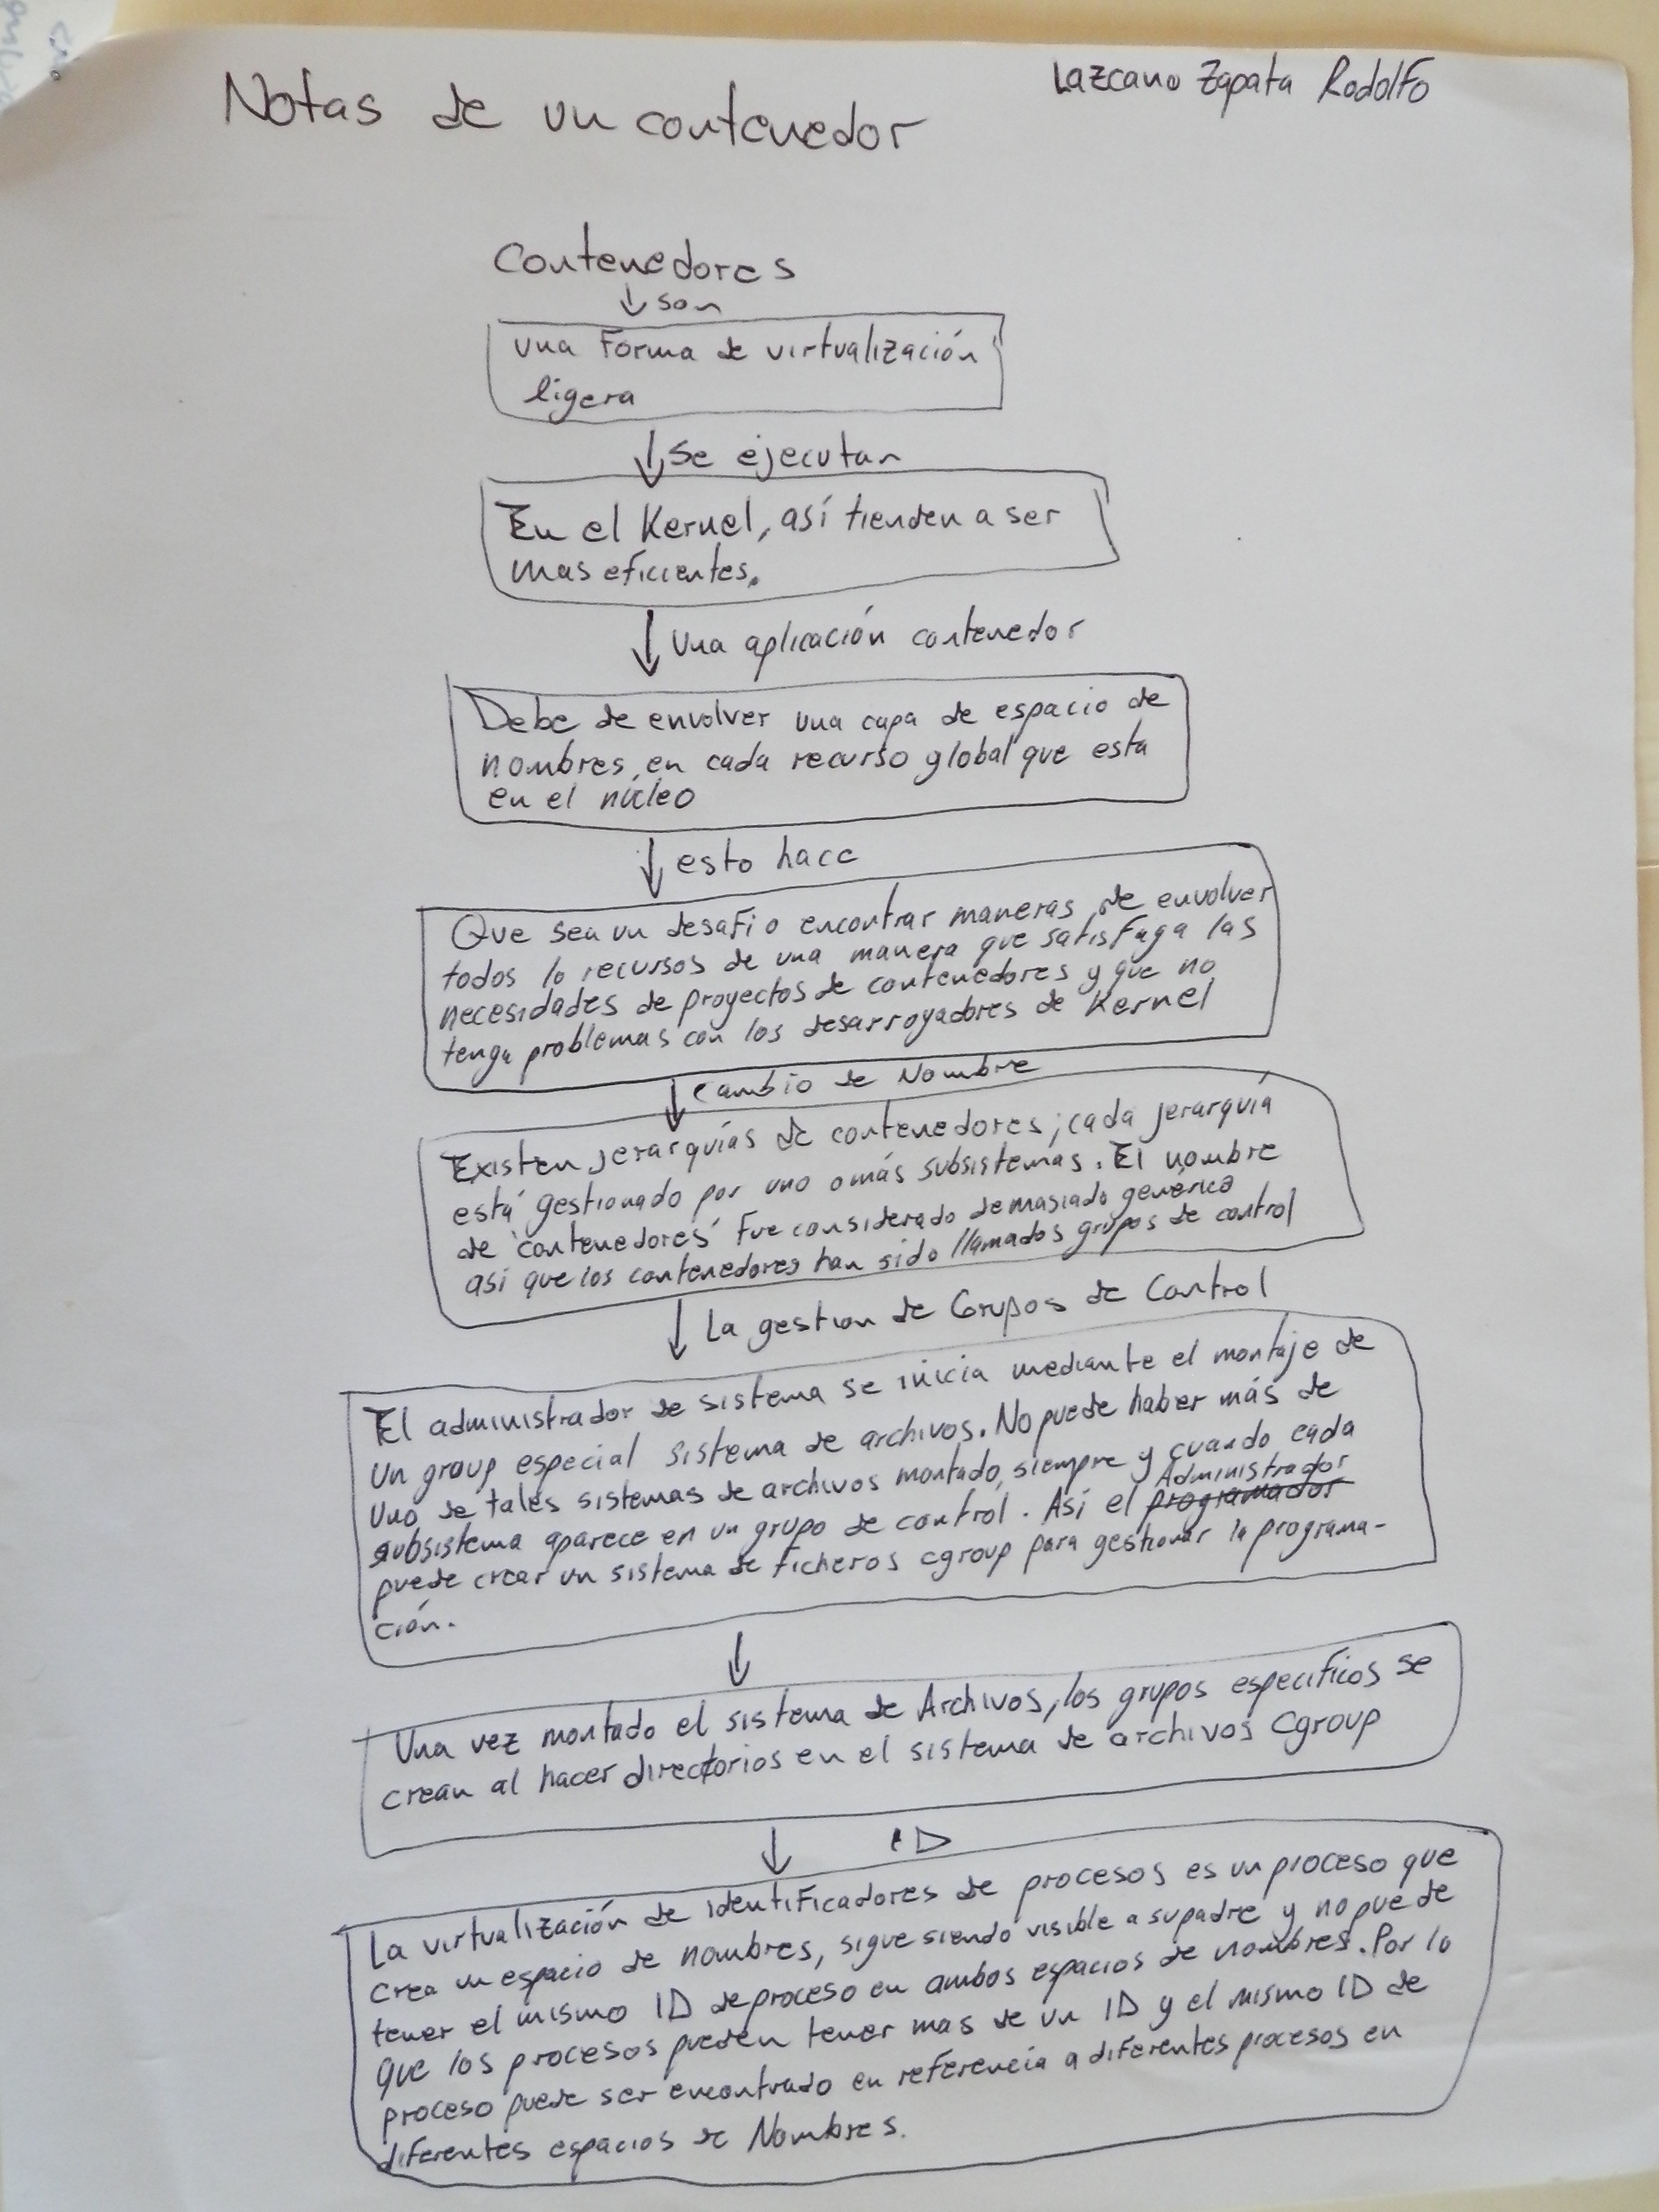 Notas de un contenedor
Lazcano Zapata Rodolfo
Contenedores
son
una Forma de virtualización
ligera
se ejecutan
En el Kernel, así tienden a ser
mas eficientes.
Una aplicación contenedor
Debe de envolver una capa de espacio de
nombres, en cada recurso global que esta
en el núcleo
esto hace
Que sea un desafio encontrar maneras de envolver
todos lo recursos de una manera que satisfaga las
necesidades de proyectos de contenedores y que no
tenga problemas con los desarroyadores de Kernel
Cambio de Nombre
Existen jerarquías de contenedores; cada jerarquía
está gestionado por uno o más subsistemas. El nombre
de 'contenedores' Fue considerado demasiado generico
así que los contenedores han sido llamados grupos de control
La gestion de Grupos de Control
El administrador de sistema se inicia mediante el montaje de
Un group especial sistema de archivos. No puede haber más de
Uno de tales sistemas de archivos montado, siempre y cuando cada
Administrador
subsistema aparece en un grupo de control. Así el programador
puede crear un sistema de ficheros cgroup para gestionar la programa-
ción.
Una vez montado el sistema de Archivos, los grupos especificos se
crean al hacer directorios en el sistema de archivos Cgroup
ID
La virtualización de identificadores de procesos es un proceso que
crea un espacio de nombres, sigue siendo visible a su padre y no puede
tener el mismo ID de proceso en ambos espacios de nombres. Por lo
que los procesos pueden tener mas de un ID y el mismo ID de
proceso puede ser encontrado en referencia a diferentes procesos en
diferentes espacios de Nombres.